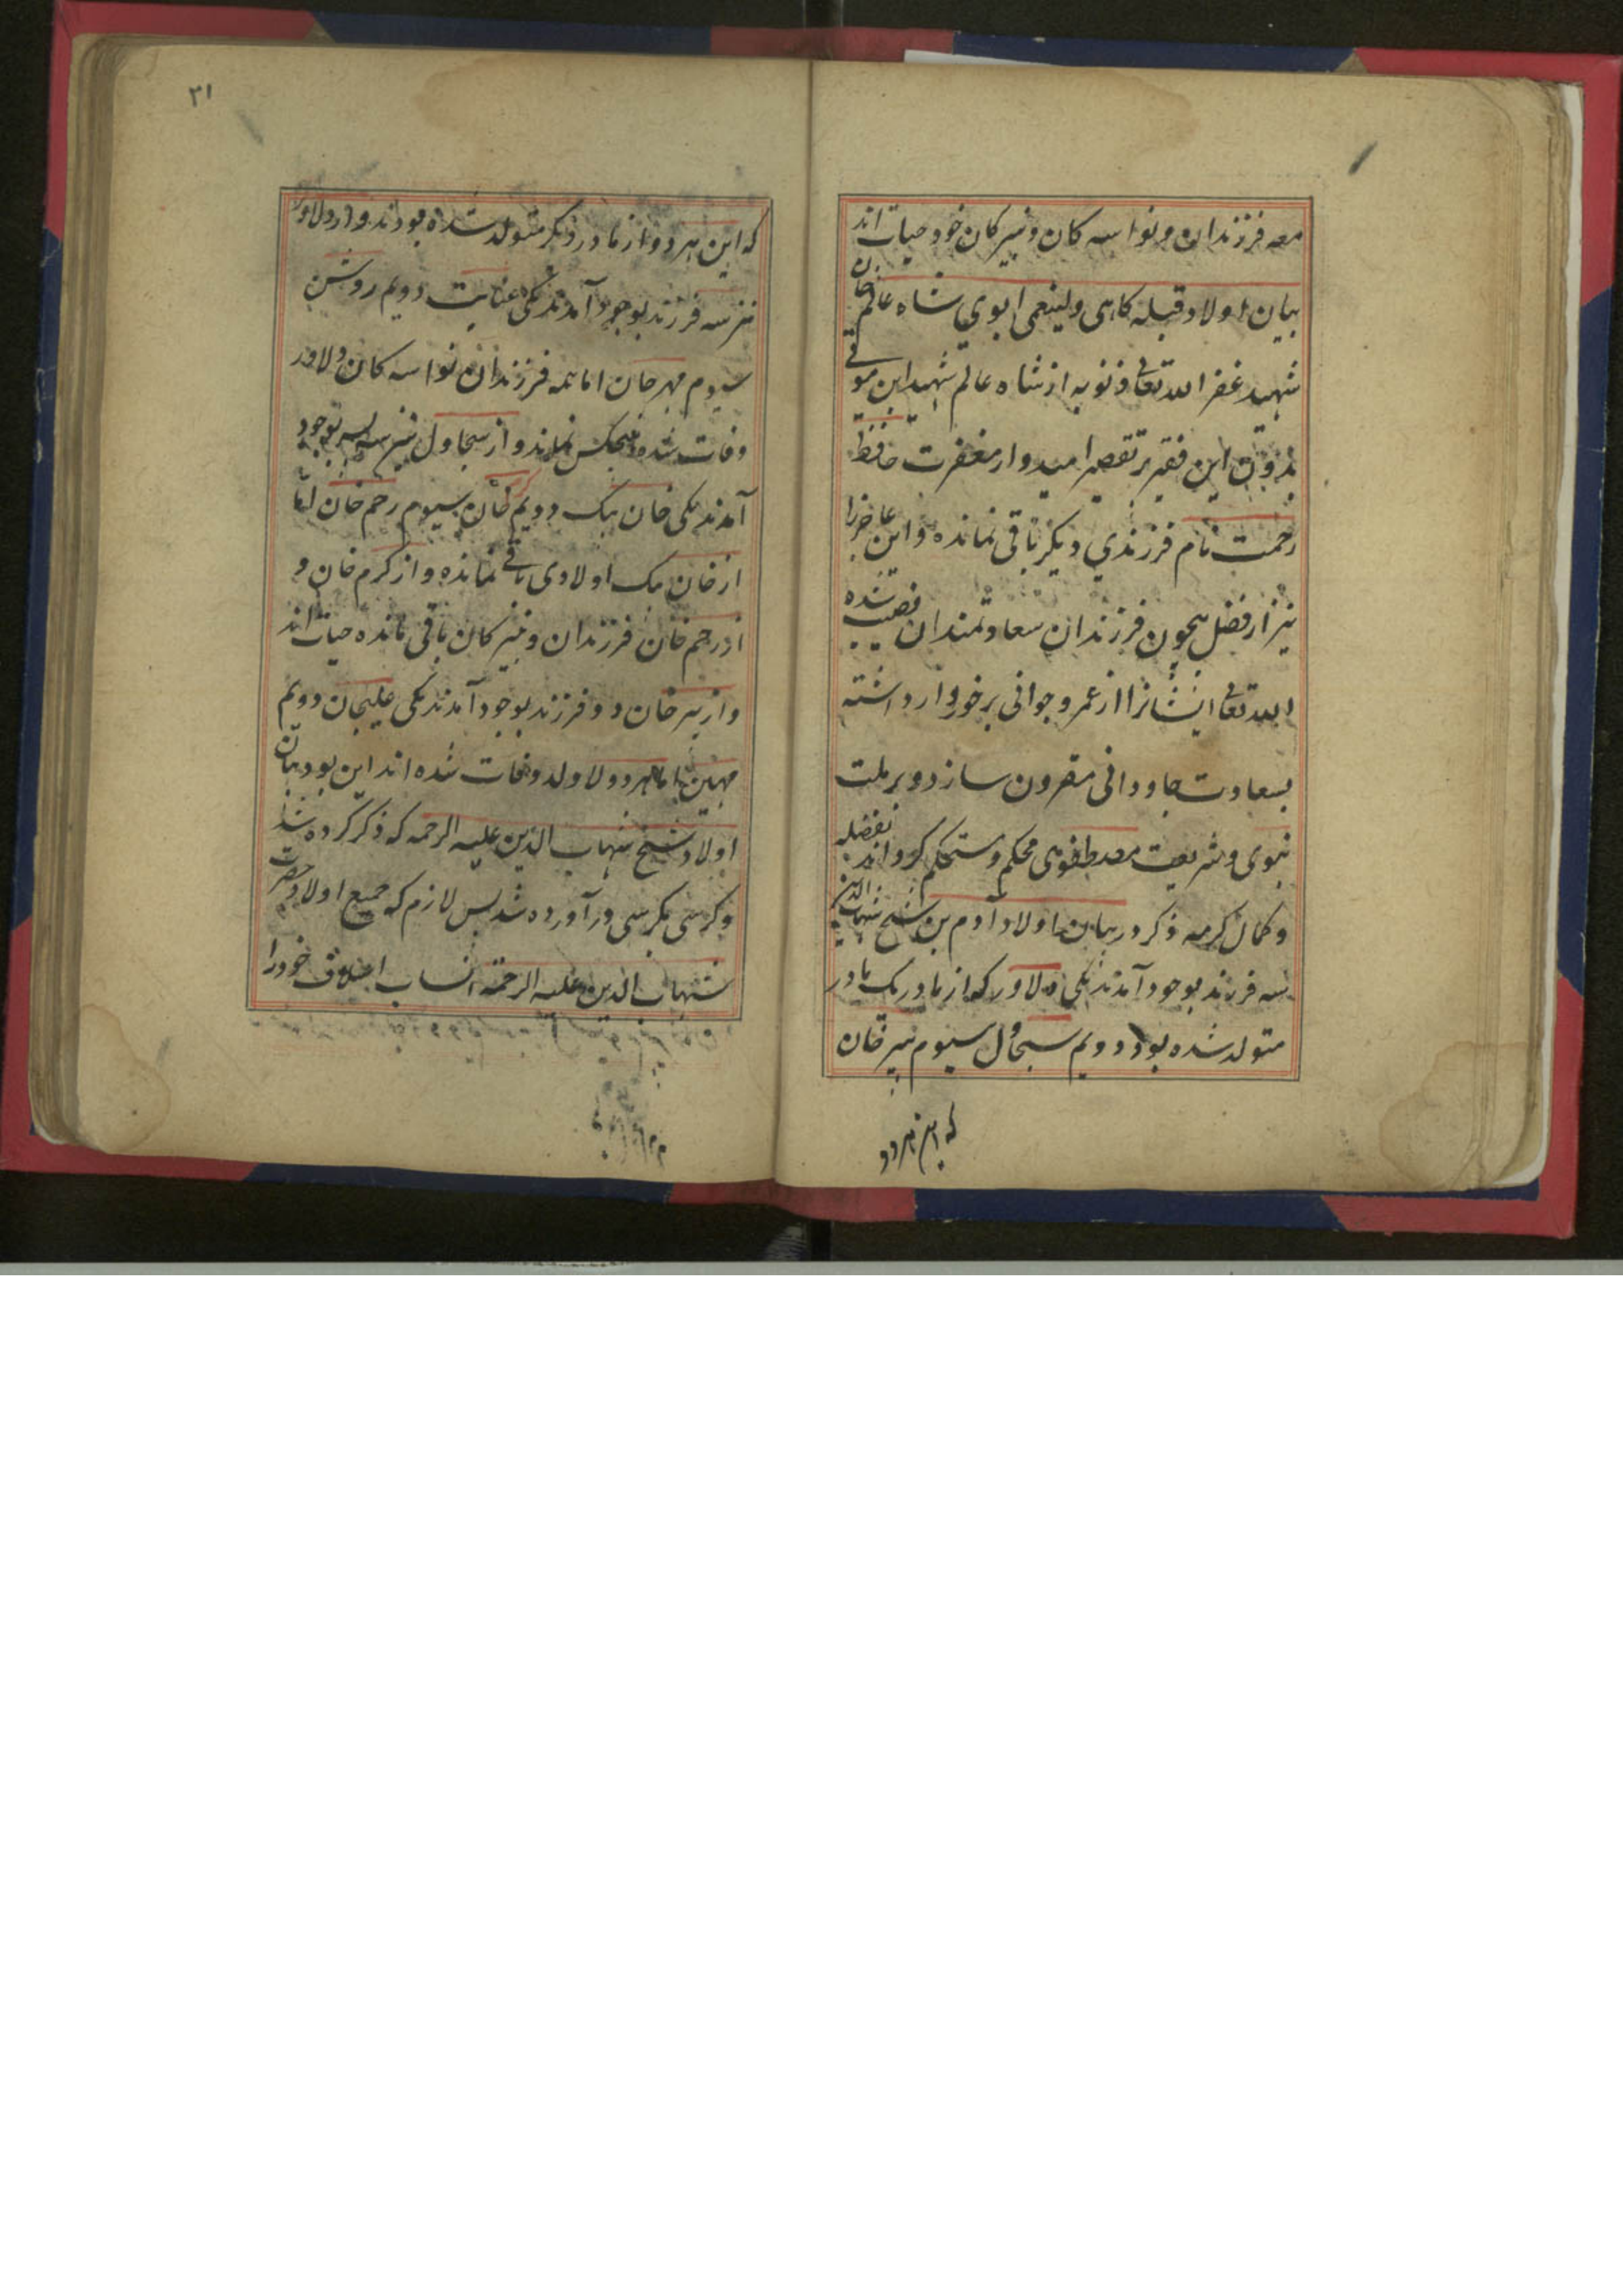 معه فرزندان و نواسه کان و نبیر کان خود حیات اند
بیان اولاد قبله کاهی ولینعمی ابوی شاه عالم خان
شهید غفر الله تعالی ذنوبه از شاه عالم شهید این
بدون این فقیر پر تقصیر امیدوار مغفرت حافظ
رحمت نام فرزندی دیکر باقی نمانده و این عاجز را
نیز از فضل بیچون فرزندان سعادتمندان نصیب شده
الله تعالی ایشانرا از عمر و جوانی برخوردار داشته
بسعادت جاودانی مقرون سازد و بر ملت
نبوی و شریعت مصطفوی محکم و مستحکم کرداند بفضله
و کمال کرمه ذکر در بیان اولاد آدم بن شیخ شهاب الدین
سه فرزند بوجود آمدند یکی دلاور که از مادر یک مادر
متولد شده بود دویم سجاول سیوم پیر خان
که این هردو
۳۱
که این هردو از مادر دیکر متولد شده بودند و از دلاور
نیز سه فرزند بوجود آمدند یکی عنایت دویم روشن
سیوم مهر خان اما همه فرزندان نواسه کان دلاور
وفات شده هیچکس نماند و از سجاول نیز سه پسر بوجود
آمدند یکی خان بیک دویم کرم خان سیوم رحم خان اما
از خان بیک اولادی باقی نمانده و از کرم خان و
از رحم خان فرزندان و نبیر کان باقی مانده حیات اند
و از پیر خان دو فرزند بوجود آمدند یکی علیخان دویم
اما هردو لاولد وفات شده اند این بود بیان
اولاد شیخ شهاب الدین علیه الرحمه که ذکر کرده شد
و کرسی بکرسی در آورده شد پس لازم که جمیع اولاد حضرت
شهاب الدین علیه الرحمة انساب اسلاف خود را